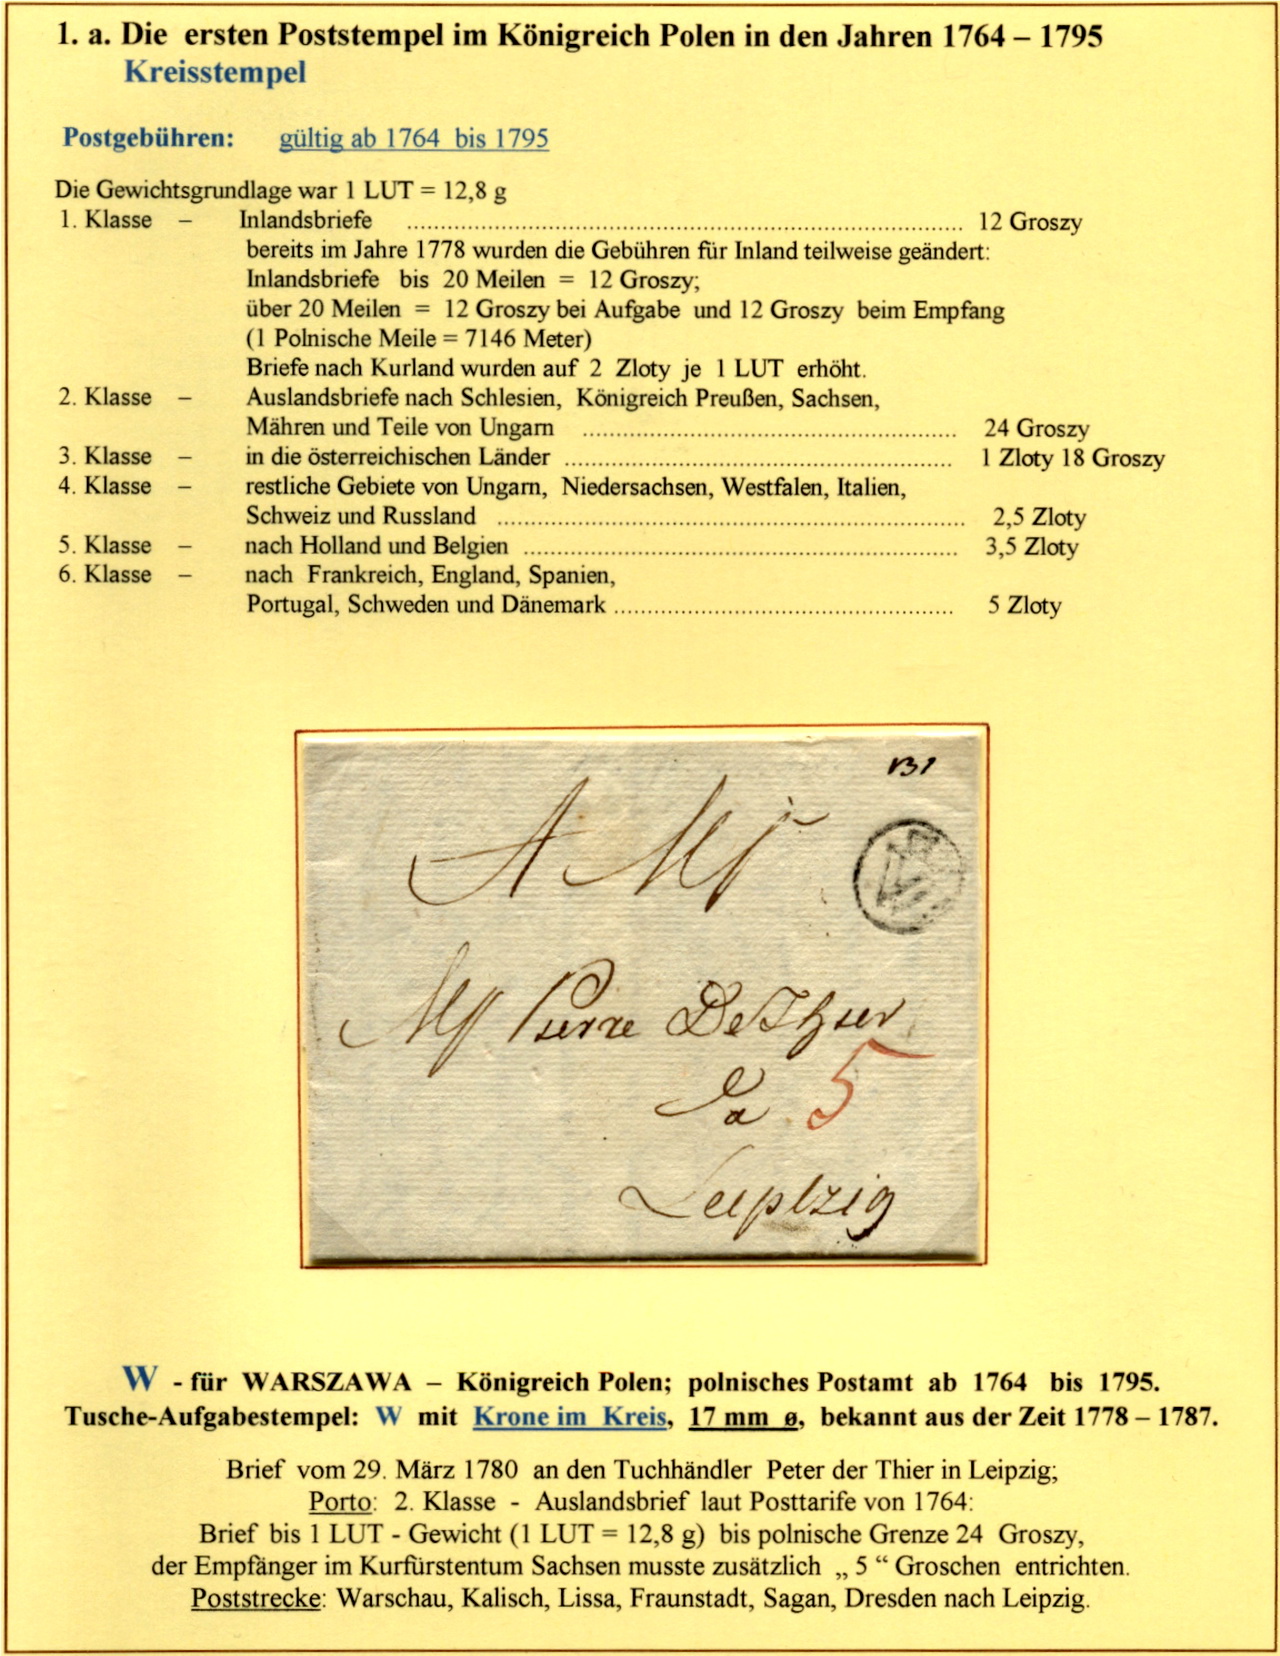 1. a. Die ersten Poststempel im Königreich Polen in den Jahren 1764 – 1795
Kreisstempel
Postgebühren: gültig ab 1764 bis 1795
Die Gewichtsgrundlage war 1 LUT = 12,8 g
1. Klasse – Inlandsbriefe ........................................................................................ 12 Groszy
bereits im Jahre 1778 wurden die Gebühren für Inland teilweise geändert:
Inlandsbriefe bis 20 Meilen = 12 Groszy;
über 20 Meilen = 12 Groszy bei Aufgabe und 12 Groszy beim Empfang
(1 Polnische Meile = 7146 Meter)
Briefe nach Kurland wurden auf 2 Zloty je 1 LUT erhöht.
2. Klasse – Auslandsbriefe nach Schlesien, Königreich Preußen, Sachsen,
Mähren und Teile von Ungarn ............................................................ 24 Groszy
3. Klasse – in die österreichischen Länder .............................................................. 1 Zloty 18 Groszy
4. Klasse – restliche Gebiete von Ungarn, Niedersachsen, Westfalen, Italien,
Schweiz und Russland .......................................................................... 2,5 Zloty
5. Klasse – nach Holland und Belgien .................................................................... 3,5 Zloty
6. Klasse – nach Frankreich, England, Spanien,
Portugal, Schweden und Dänemark ..................................................... 5 Zloty
A
Pierre
5
Leipzig
W - für WARSZAWA – Königreich Polen; polnisches Postamt ab 1764 bis 1795.
Tusche-Aufgabestempel: W mit Krone im Kreis, 17 mm ø, bekannt aus der Zeit 1778 – 1787.
Brief vom 29. März 1780 an den Tuchhändler Peter der Thier in Leipzig;
Porto: 2. Klasse - Auslandsbrief laut Posttarife von 1764:
Brief bis 1 LUT - Gewicht (1 LUT = 12,8 g) bis polnische Grenze 24 Groszy,
der Empfänger im Kurfürstentum Sachsen musste zusätzlich „ 5 “ Groschen entrichten.
Poststrecke: Warschau, Kalisch, Lissa, Fraunstadt, Sagan, Dresden nach Leipzig.